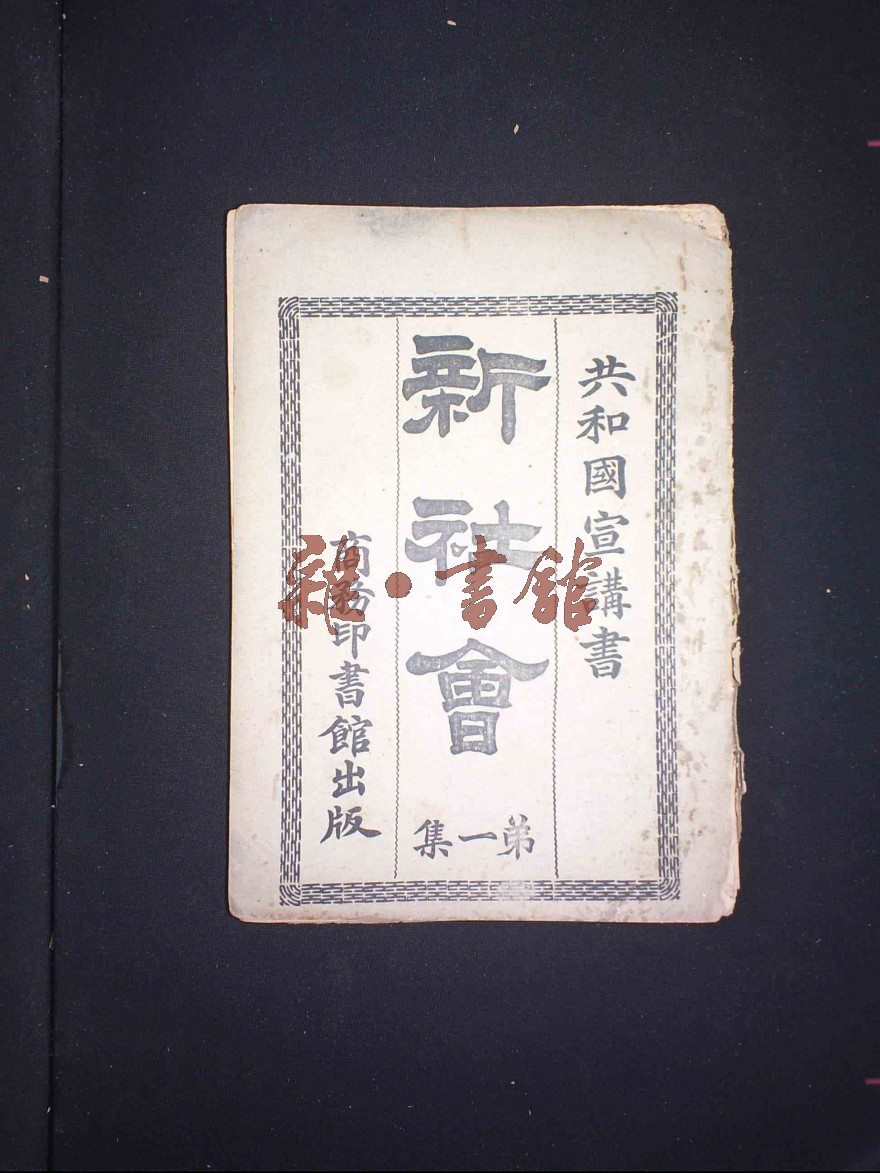 共和國宣講書
新社會
弟一集
商務印書館出版
雜·書館